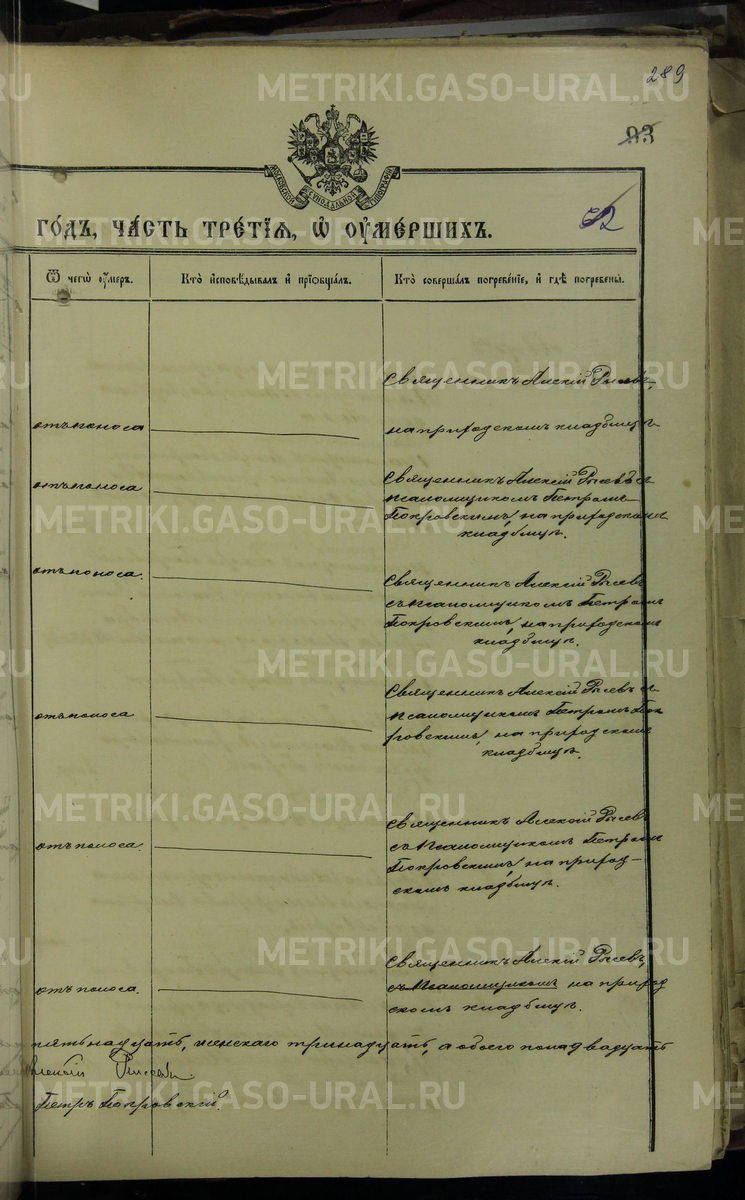 289
93
92
МОСКОВСКОЙ СѴНОДАЛЬНОЙ ТИПОГРАФІИ
ГО́ДЪ, ЧА́СТЬ ТРЕ́ТІѦ, Ѽ ОУ҆МЕ́РШИХЪ.
Ѿ чегѡ̀ оу҆́меръ.
Кто̀ и҆сповѣ́дывалъ и҆ прїѻбща́лъ.
Кто̀ соверша́лъ погребе́нїе, и҆ гдѣ̀ погребены̀.
Священникъ Алексій Рысевъ,
отъ поноса
на приходскомъ кладбищѣ
отъ поноса
Священникъ Алексій Рысевъ съ
псаломщикомъ Петромъ
Покровскимъ, на приходскомъ
кладбищѣ.
отъ поноса.
Священникъ Алексій Рысевъ
съ псаломщикомъ Петромъ
Покровскимъ, на приходскомъ
кладбищѣ.
отъ поноса
Священникъ Алексій Рысевъ съ
псаломщикомъ Петромъ Пок
ровскимъ, на приходскомъ
кладбищѣ.
отъ поноса
Священникъ Алексій Рысевъ
съ псаломщикомъ Петромъ
Покровскимъ, на приход-
скомъ кладбищѣ.
отъ поноса.
Священникъ Алексій Рысевъ,
съ псаломщикомъ на приход
скомъ кладбищѣ.
пятьнадцать, женскаго тринадцать, а обоего пола двадцать
Алексій Рысевъ.
Петръ Покровскій.
METRIKI.GASO-URAL.RU